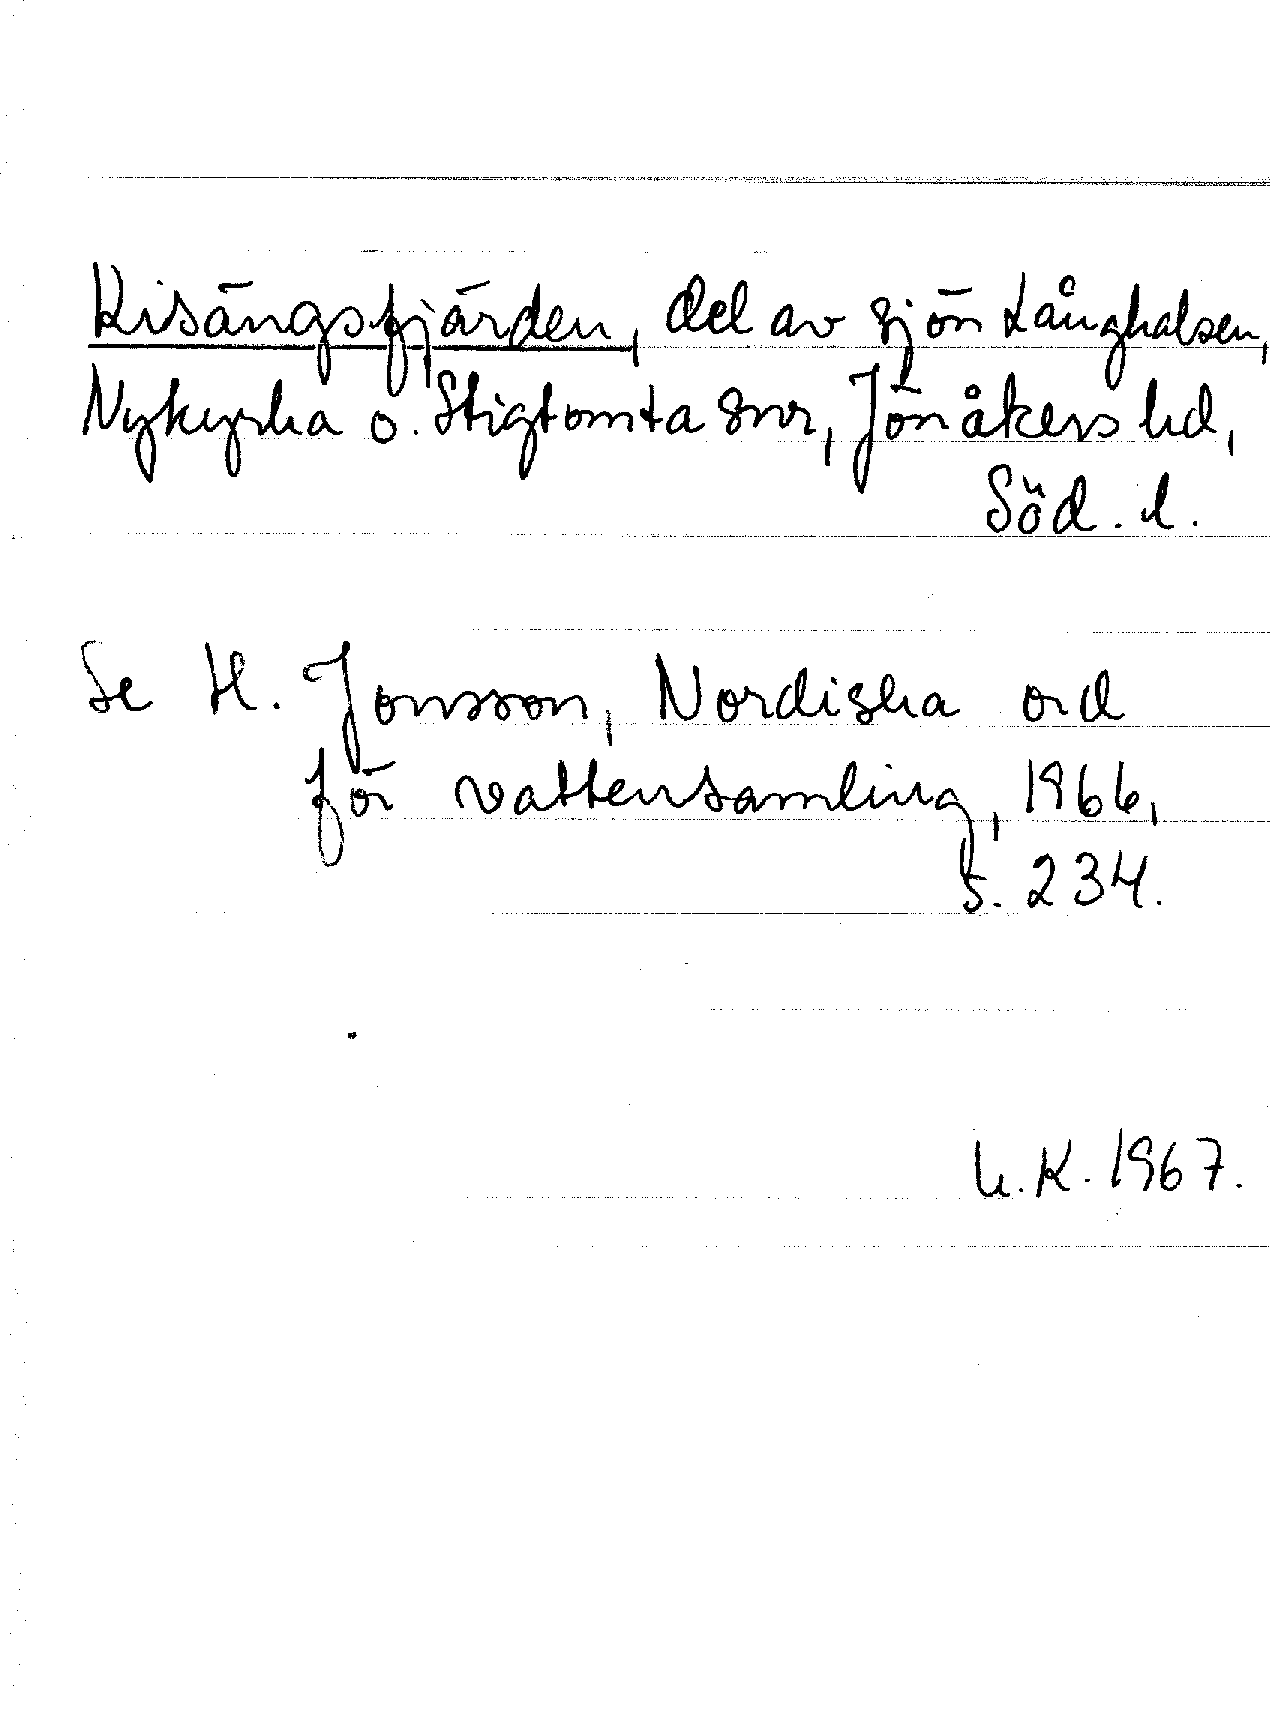 Kisängsfjärden, del av sjön Långhalsen,
Nykyrka o. Stigtomta snr, Jönåkers hd,
Söd. l.
Se H. Jonsson, Nordiska ord
för vattensamling, 1966,
s. 234.
U.K. 1967.